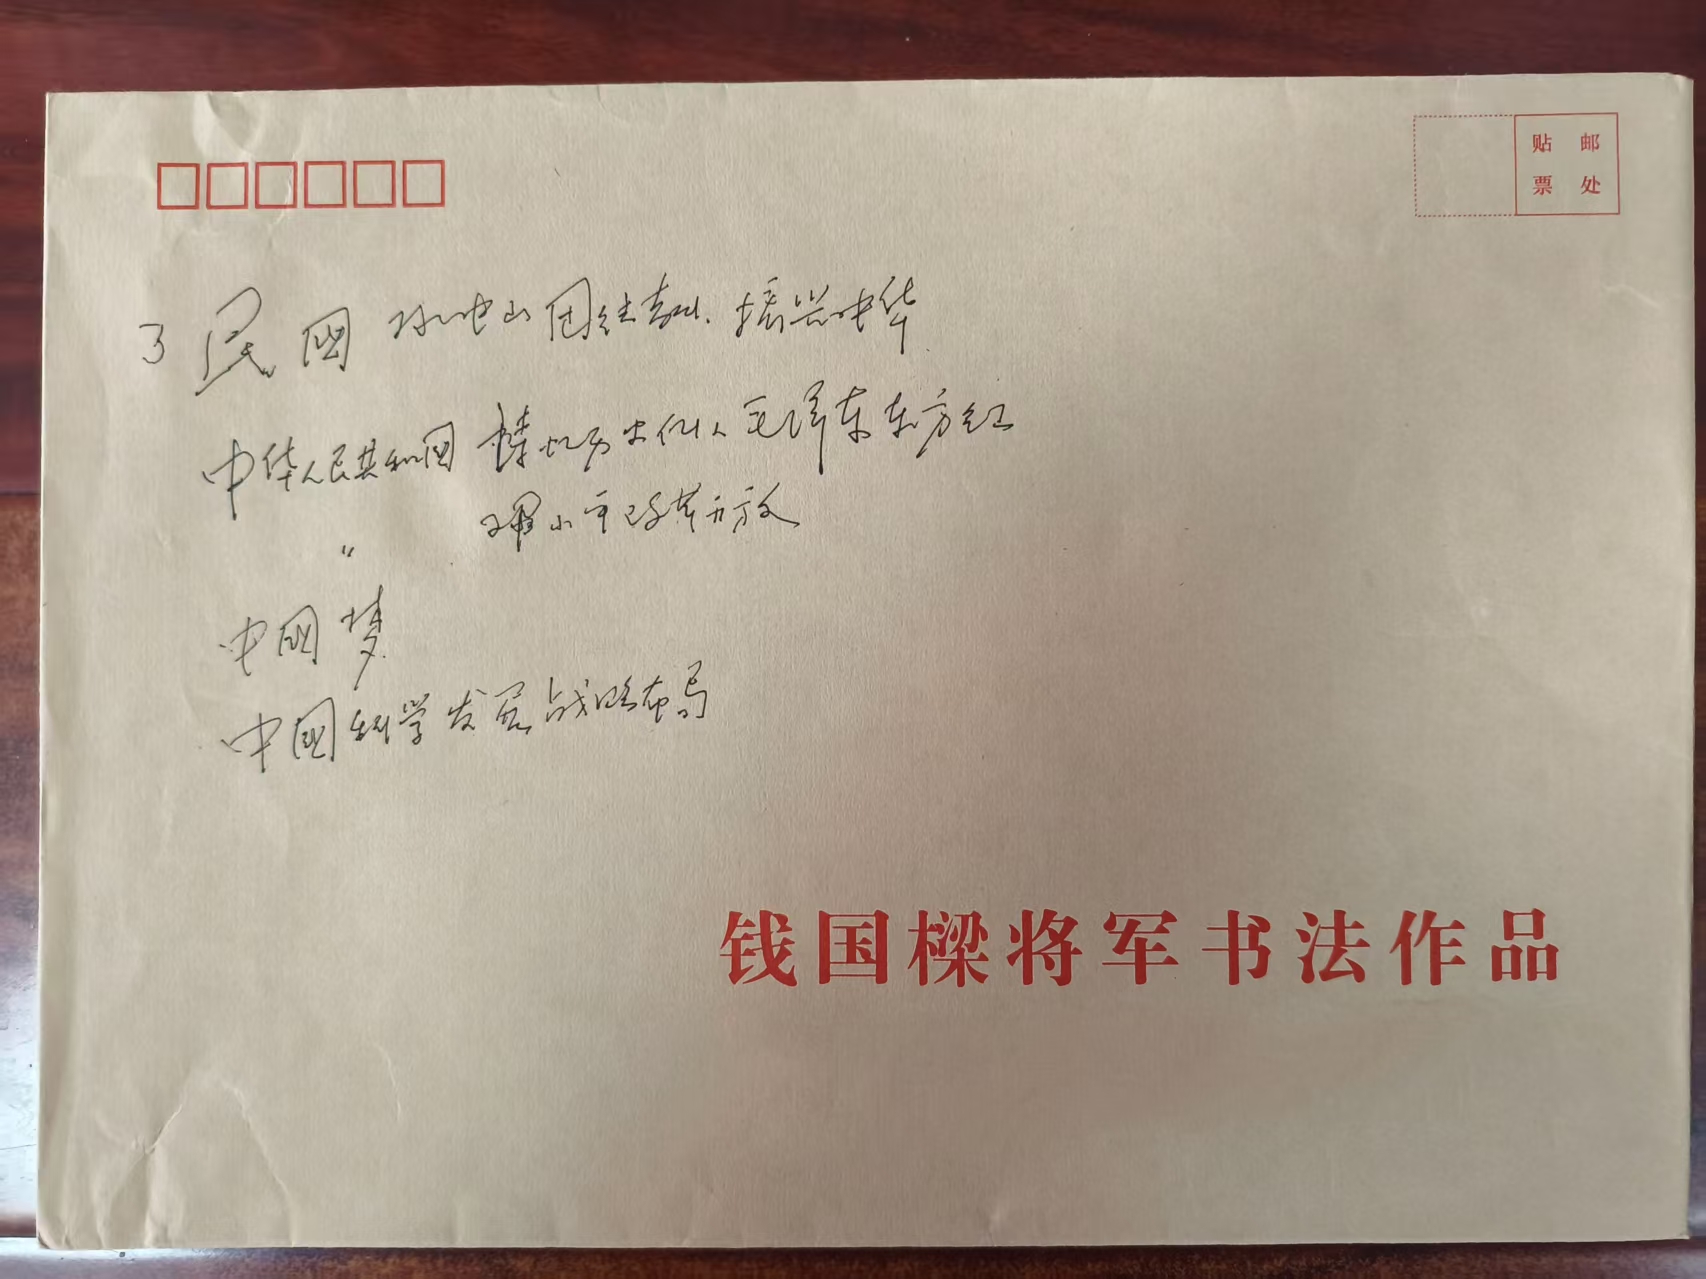 贴 邮
票 处
3 民国 孙中山 团结 振兴中华
中华人民共和国 历史伟人毛泽东东方红
〃 邓小平改革开放
中国梦
中国科学发展战略布局
钱国樑将军书法作品